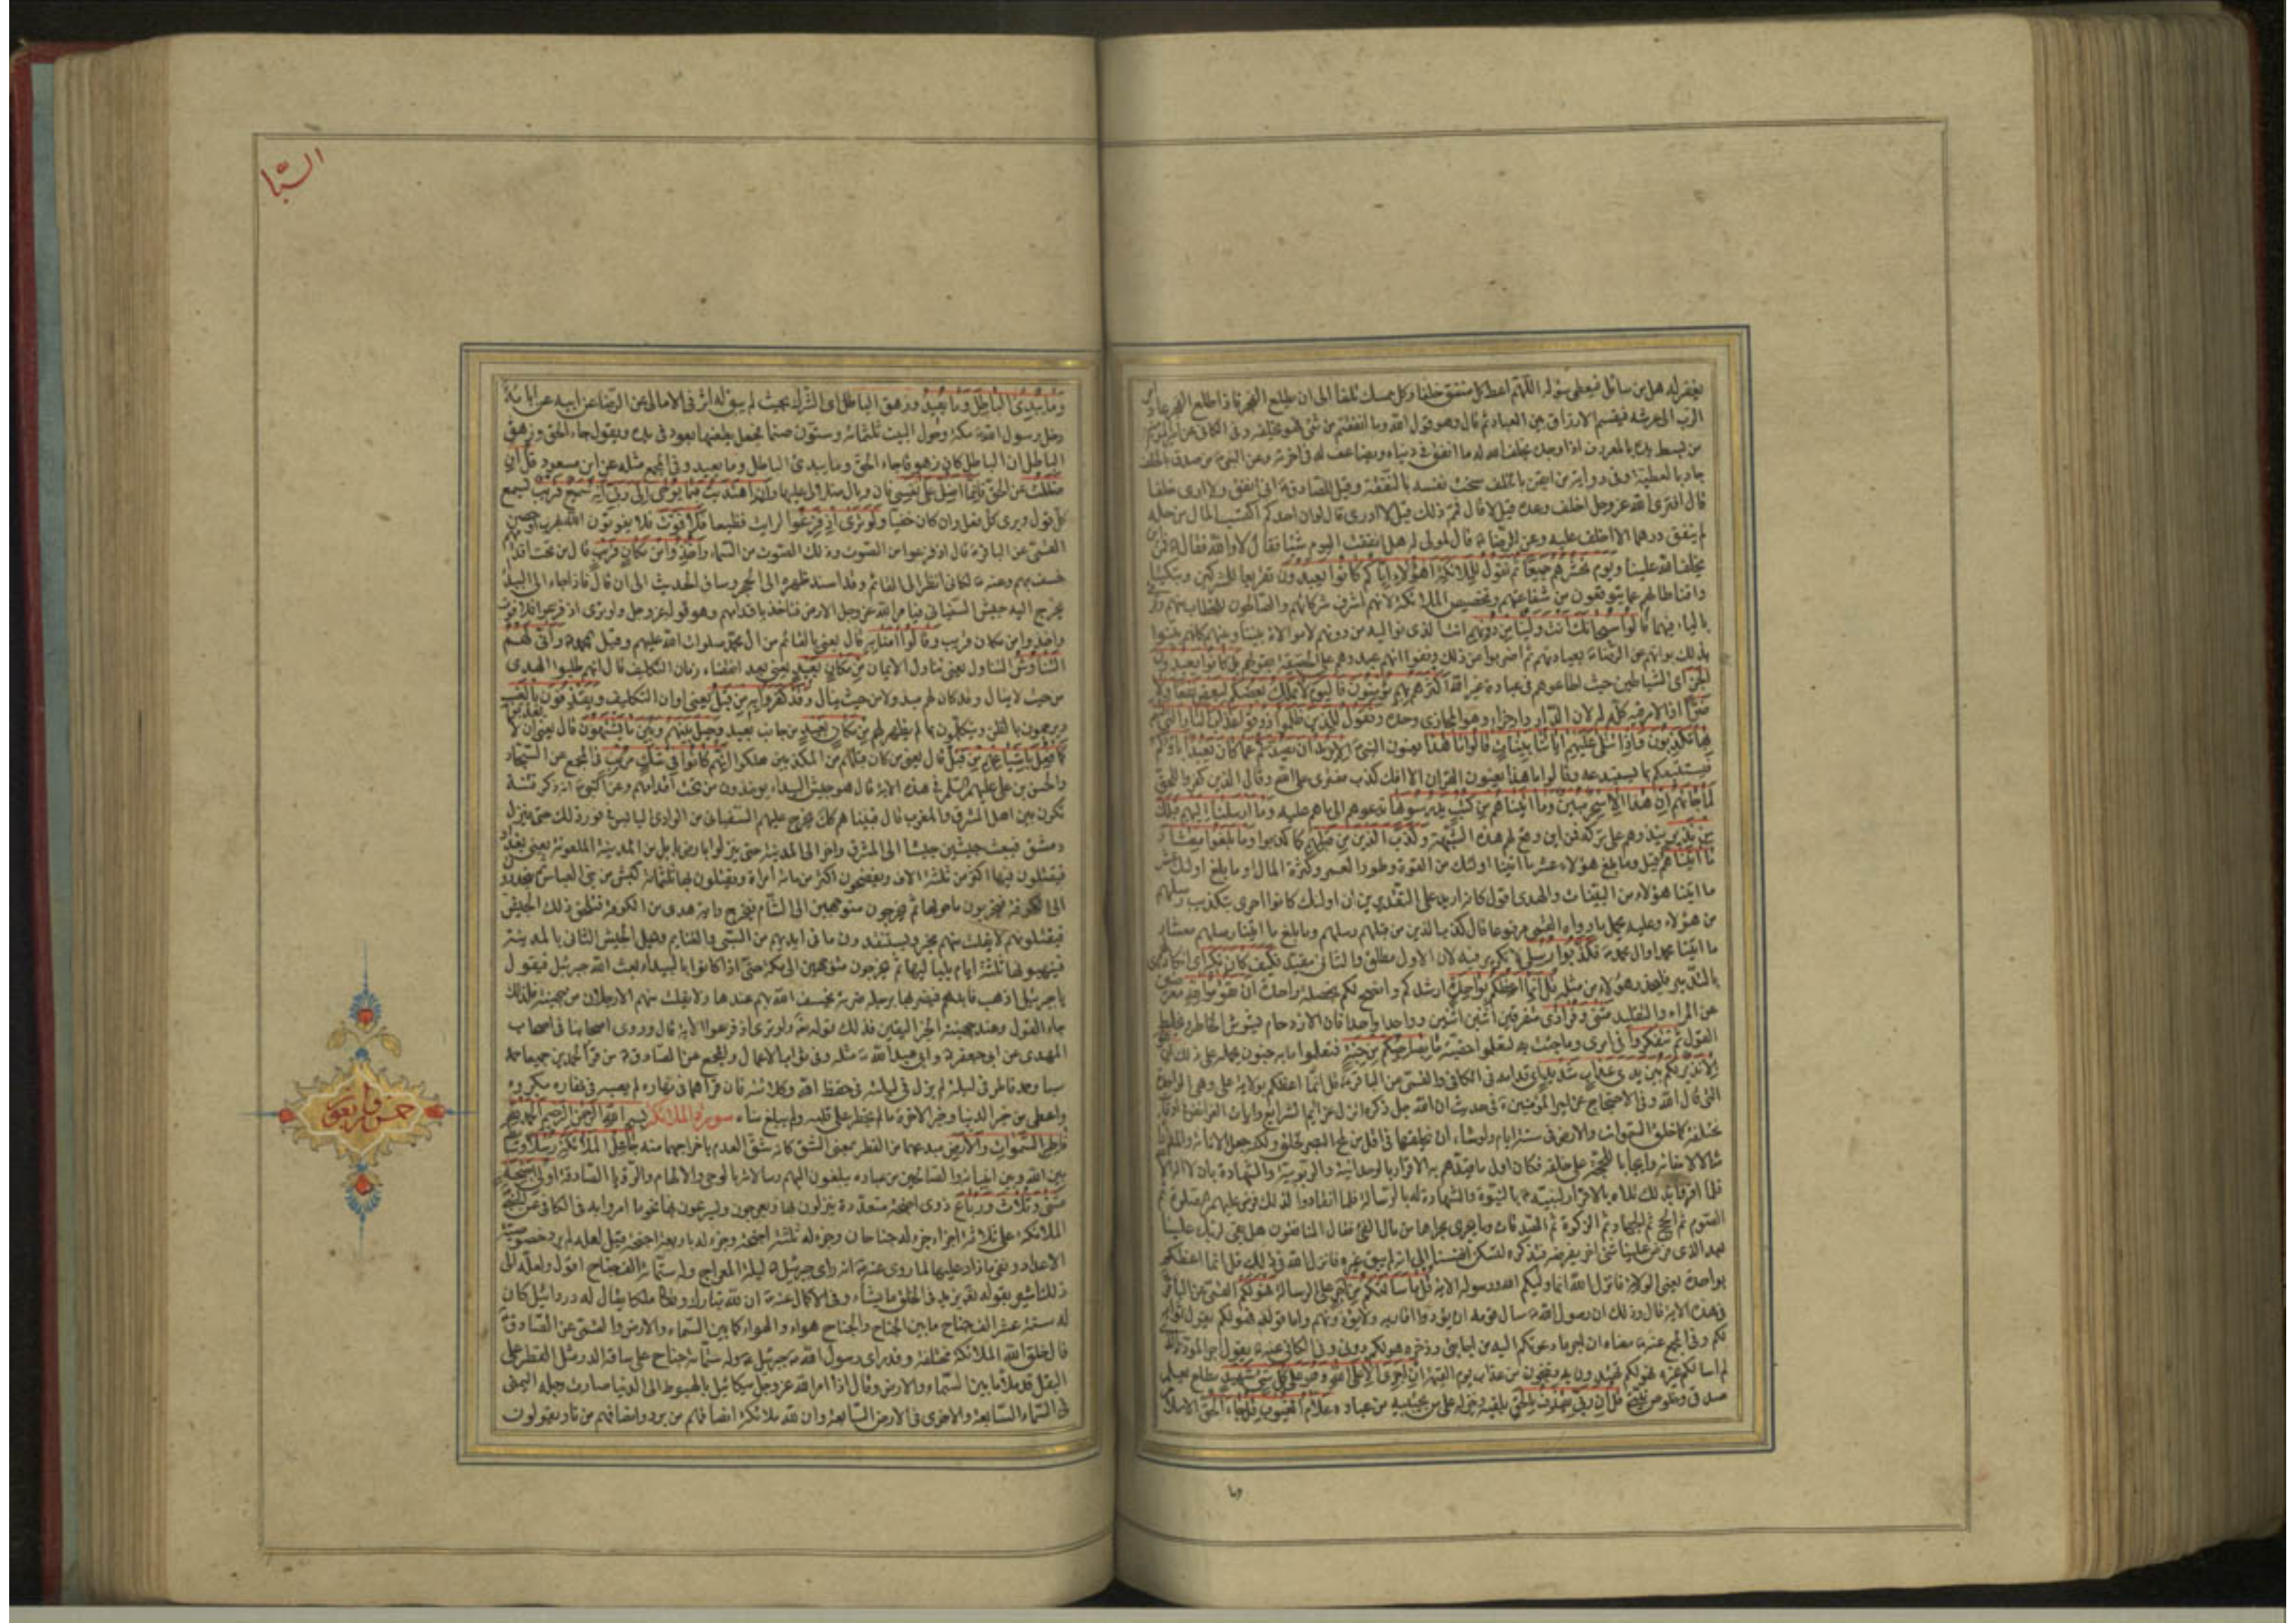 يغفر له هل من سائل فيعطى سؤله اللهم اعط كل منفق خلفا وكل ممسك تلفا الى ان يطلع الفجر فاذا طلع الفجر عاد
الرب الى عرشه فيقسم الارزاق بين العباد ثم قال وهو قول الله وما انفقتم من شئ فهو يخلفه وفى الكافى عن
من يبسط يده بالمعروف اذا وجده يخلف الله له ما انفق فى دنياه ويضاعف له فى آخرته وعن النبى من صدق بالخلف
جاد بالعطية وفى رواية من ايقن بالخلف سخت نفسه بالنفقة وقيل للصادق انى انفق ولا ارى خلفا
قال افترى الله عز وجل اخلف وعده قيل لا قال فمم ذلك قيل لا ادرى قال لو ان احدكم اكتسب المال من حله
لم ينفق درهما الا اخلف عليه وعن الرضا قال لمولى له هل انفقت اليوم شيئا فقال لا والله فقال فمن اين
يخلف الله علينا ويوم نحشرهم جميعا ثم نقول للملائكة اهؤلاء اياكم كانوا يعبدون تقريعا للمشركين وتبكيتا
واقناطا لهم عما يتوقعون من شفاعتهم وتخصيص الملائكة لانهم اشرف شركائهم والصالحون للخطاب منهم
بالياء فيهما قالوا سبحانك انت ولينا من دونهم انت الذى نواليه من دونهم لا موالاة بيننا وبينهم كانهم بينوا
بذلك براءتهم عن الرضاء بعبادتهم ثم اضربوا عن ذلك ونفوا انهم عبدوهم على الحقيقة بقولهم بل كانوا يعبدون
الجن اى الشياطين حيث اطاعوهم فى عبادة غير الله اكثرهم بهم مؤمنون فاليوم لا يملك بعضكم لبعض نفعا ولا
ضرا اذ الامر فيه كله له لان الدار دار جزاء وهو المجازى وحده ونقول للذين ظلموا ذوقوا عذاب النار التى كنتم
بها تكذبون واذا تتلى عليهم آياتنا بينات قالوا ما هذا يعنون النبى الا رجل يريد ان يصدكم عما كان يعبد آباؤكم
فيستتبعكم بما يستبدعه وقالوا ما هذا يعنون القرآن الا افك كذب مفترى على الله وقال الذين كفروا للحق
لما جاءهم ان هذا الا سحر مبين وما آتيناهم من كتب يدرسونها تدعوهم الى ما هم عليه وما ارسلنا اليهم قبلك
من نذير ينذرهم على تركه فمن اين وقع لهم هذه الشبهة وكذب الذين من قبلهم كما كذبوا وما بلغوا معشار
ما آتيناهم قيل وما بلغ هؤلاء عشر ما آتينا اولئك من القوة وطول العمر وكثرة المال او ما بلغ اولئك عشر
ما آتينا هؤلاء من البينات والهدى اقول كانه اريد على التقديرين ان اولئك كانوا احرى بتكذيب رسلهم
من هؤلاء وعليه يحمل ما رواه القمى مرفوعا قال كذب الذين من قبلهم رسلهم وما بلغ ما آتينا رسلهم معشار
ما آتينا محمدا وآل محمد فكذبوا رسلى لا تكرير فيه لان الاول مطلق والثانى مقيد فكيف كان نكير اى انكارى
بالتدمير فليحذر هؤلاء من مثله قل انما اعظكم بواحدة ارشدكم وانصح لكم بخصلة واحدة ان تقوموا لله معرضين
عن المراء والتقليد مثنى وفرادى متفرقين اثنين اثنين وواحدا واحدا فان الازدحام يشوش الخاطر ويخلط
القول ثم تتفكروا فى امرى وما جئت به لتعلموا حقيته ما بصاحبكم من جنة فتعلموا ما به جنون يحمله على ذلك ان هو
الا نذير لكم بين يدى عذاب شديد اى قدامه فى الكافى والقمى عن الباقر قل انما اعظكم بولاية على وهى الواحدة
التى قال الله وفى الاحتجاج عن امير المؤمنين فى حديث ان الله جل ذكره انزل عزائم الشرائع وآيات الفرائض فى اوقات
مختلفة كما خلق السموات والارض فى ستة ايام ولو شاء ان يخلقها فى اقل من لمح البصر لخلق ولكنه جعل الاناة والمداراة
مثالا لامنائه وايجابا للحجة على خلقه فكان اول ما قيدهم به الاقرار بالوحدانية والربوبية والشهادة بان لا اله الا الله
فلما اقروا بذلك تلاه بالاقرار لنبيه بالنبوة والشهادة له بالرسالة فلما انقادوا لذلك فرض عليهم الصلوة ثم
الصوم ثم الحج ثم الجهاد ثم الزكوة ثم الصدقات وما يجرى مجراها من مال الفئ فقال المنافقون هل بقى لربك علينا
بعد الذى فرض علينا شئ آخر يفرضه فتذكره لتسكن انفسنا الى انه لم يبق غيره فانزل الله فى ذلك قل انما اعظكم
بواحدة يعنى الولاية فانزل الله انما وليكم الله ورسوله الآية قل ما سألتكم من اجر على الرسالة فهو لكم القمى عن الباقر
فى هذه الآية قال وذلك ان رسول الله سأل قومه ان يودوا اقاربه ولا يؤذونهم واما قوله فهو لكم يقول ثوابه
لكم وفى المجمع عنه معناه ان اجر ما دعوتكم اليه من اجابتى وذخره هو لكم دونى وفى الكافى عنه يقول اجر المودة الذى
لم اسألكم غيره فهو لكم تهتدون به وتنجون من عذاب يوم القيمة ان اجرى الا على الله وهو على كل شئ شهيد مطلع يعلم
صدقى وخلوص نيتى قل ان ربى يقذف بالحق يلقيه وينزله على من يجتبيه من عباده علام الغيوب قل جاء الحق الاسلام
وما
السبا
وما يبدئ الباطل وما يعيد وزهق الباطل اى الشرك بحيث لم يبق له اثر فى الامالى عن الرضا عن ابيه عن آبائه
دخل رسول الله مكة وحول البيت ثلثمائة وستون صنما فجعل يطعنها بعود فى يده ويقول جاء الحق وزهق
الباطل ان الباطل كان زهوقا جاء الحق وما يبدئ الباطل وما يعيد وفى المجمع مثله عن ابن مسعود قل ان
ضللت عن الحق فانما اضل على نفسى فان وبال ضلالى عليها وان اهتديت فبما يوحى الى ربى انه سميع قريب يسمع
كل قول ويرى كل فعل وان كان خفيا ولو ترى اذ فزعوا لرأيت فظيعا فلا فوت فلا يفوتون الله بهرب او حصن
القمى عن الباقر قال اذ فزعوا من الصوت وذلك الصوت من السماء واخذوا من مكان قريب قال من تحت اقدامهم
خسف بهم وعنه لكانى انظر الى القائم وقد اسند ظهره الى الحجر وساق الحديث الى ان قال فاذا جاء الى البيداء
يخرج اليه جيش السفيانى فيامر الله عز وجل الارض فتاخذ باقدامهم وهو قوله عز وجل ولو ترى اذ فزعوا فلا فوت
واخذوا من مكان قريب وقالوا آمنا به قال يعنى بالقائم من آل محمد صلوات الله عليهم وقيل بمحمد وانى لهم
التناوش التناول يعنى تناول الايمان من مكان بعيد يعنى بعد انقضاء زمان التكليف قال انهم طلبوا الهدى
من حيث لا ينال وقد كان لهم مبذولا من حيث ينال وقد كفروا به من قبل يعنى اوان التكليف ويقذفون بالغيب
ويرجمون بالظن ويتكلمون بما لم يظهر لهم من مكان بعيد من جانب بعيد وحيل بينهم وبين ما يشتهون قال يعنى ان لا يعذبوا
كما فعل باشياعهم من قبل قال يعنى من كان قبلهم من المكذبين هلكوا انهم كانوا فى شك مريب فى المجمع عن السجاد
والحسن بن على عليهم السلام فى هذه الآية قال هو جيش البيداء يؤخذون من تحت اقدامهم وعن النبى انه ذكر فتنة
تكون بين اهل المشرق والمغرب قال فبينا هم كذلك يخرج عليهم السفيانى من الوادى اليابس فى فور ذلك حتى ينزل
دمشق فيبعث جيشين جيشا الى المشرق وآخر الى المدينة حتى ينزلوا بارض بابل من المدينة الملعونة يعنى بغداد
فيقتلون فيها اكثر من ثلثة آلاف ويفضحون اكثر من مائة امرأة ويقتلون بها ثلثمائة كبش من بنى العباس ثم ينحدرون
الى الكوفة فيخربون ما حولها ثم يخرجون متوجهين الى الشام فيخرج راية هدى من الكوفة فتلحق ذلك الجيش
فيقتلونهم لا يفلت منهم مخبر ويستنقذون ما فى ايديهم من السبى والغنايم ويحل الجيش الثانى بالمدينة
فينهبونها ثلثة ايام بلياليها ثم يخرجون متوجهين الى مكة حتى اذا كانوا بالبيداء بعث الله جبرئيل فيقول
يا جبرئيل اذهب فابدهم فيضربها برجله ضربة يخسف الله بهم عندها ولا يفلت منهم الا رجلان من جهينة فلذلك
جاء القول وعند جهينة الخبر اليقين فذلك قوله ولو ترى اذ فزعوا الآية قال وروى اصحابنا فى احاديث
المهدى عن ابى جعفر وابى عبد الله مثله وفى ثواب الاعمال والمجمع عن الصادق من قرأ الحمدين جميعا حمد
سبا وحمد فاطر فى ليلة لم يزل فى ليلته فى حفظ الله وكلائته فان قرأهما فى نهاره لم يصبه فى نهاره مكروه
واعطى من خير الدنيا وخير الآخرة ما لم يخطر على قلبه ولم يبلغ مناه سورة الملائكة بسم الله الرحمن الرحيم الحمد لله
فاطر السموات والارض مبدعهما من الفطر بمعنى الشق كانه شق العدم باخراجهما منه جاعل الملائكة رسلا وسايط
بين الله وبين انبيائه والصالحين من عباده يبلغون اليهم رسالاته بالوحى والالهام والرؤيا الصادقة اولى اجنحة
مثنى وثلاث ورباع ذوى اجنحة متعددة ينزلون بها ويعرجون ويسرعون بها نحو ما امروا به فى الكافى عن النبى
الملائكة على ثلاثة اجزاء جزء له جناحان وجزء له ثلثة اجنحة وجزء له اربعة اجنحة وقيل لعله لم يرد خصوصية
الاعداد ونفى ما زاد عليها لما روى عنه انه راى جبرئيل ليلة المعراج وله ستمائة الف جناح اقول ولعله الى
ذلك اشير بقوله تعالى يزيد فى الخلق ما يشاء وفى الاكمال عنه ان لله تبارك وتعالى ملكا يقال له دردائيل كان
له ستة عشر الف جناح ما بين الجناح والجناح هواء والهواء كما بين السماء والارض والقمى عن الصادق
قال خلق الله الملائكة مختلفة وقد راى رسول الله جبرئيل وله ستمائة جناح على ساقه الدر مثل القطر على
البقل قد ملأ ما بين السماء والارض وقال اذا امر الله عز وجل ميكائيل بالهبوط الى الدنيا صارت رجله اليمنى
فى السماء السابعة والاخرى فى الارض السابعة وان لله ملائكة انصافهم من برد وانصافهم من نار يقولون